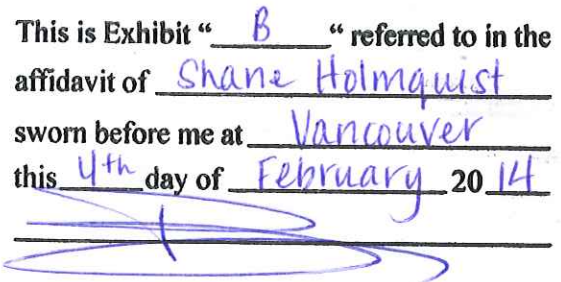 This is Exhibit “ B “ referred to in the
affidavit of Shane Holmquist
sworn before me at Vancouver
this 4th day of February 20 14